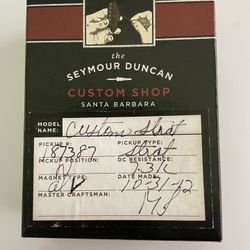 the
SEYMOUR DUNCAN
CUSTOM SHOP
SANTA BARBARA
MODEL NAME: Custom Strat
PICKUP #: PICKUP TYPE:
187387 Strat
PICKUP POSITION: DC RESISTANCE:
7.31K
MAGNET TYPE: DATE MADE:
10-31-12
MASTER CRAFTSMAN: